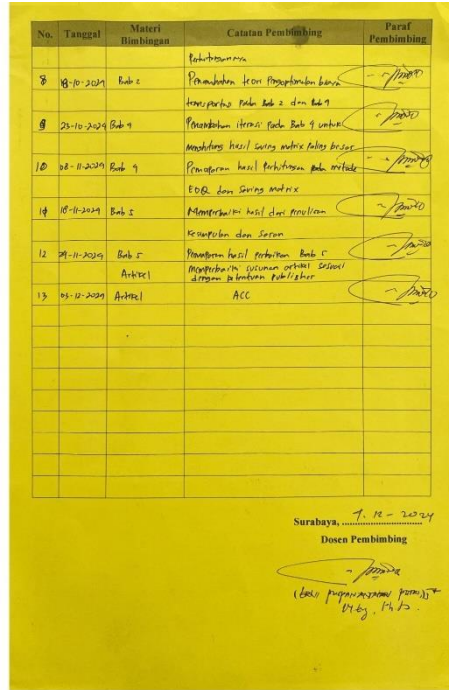 No. Tanggal Materi Bimbingan Catatan Pembimbing Paraf Pembimbing
Perhitungannya
8 18-10-2024 Bab 2 Penambahan teori Pengoptimalan biaya
transportasi Pada Bab 2 dan Bab 4
9 23-10-2024 Bab 4 Penambahan iterasi Pada Bab 4 untuk
menghitung hasil Saving matrix Paling besar
10 08-11-2024 Bab 4 Pemaparan hasil Perhitungan Pada metode
EOQ dan Saving matrix
11 18-11-2024 Bab 5 Memperbaiki hasil dari Penulisan
Kesimpulan dan Saran
12 29-11-2024 Bab 5 Pemaparan hasil perbaikan Bab 5
Artikel Memperbaiki susunan artikel sesuai
dengan ketentuan Publisher
13 03-12-2024 Artikel ACC
Surabaya, 9.12-2024
Dosen Pembimbing